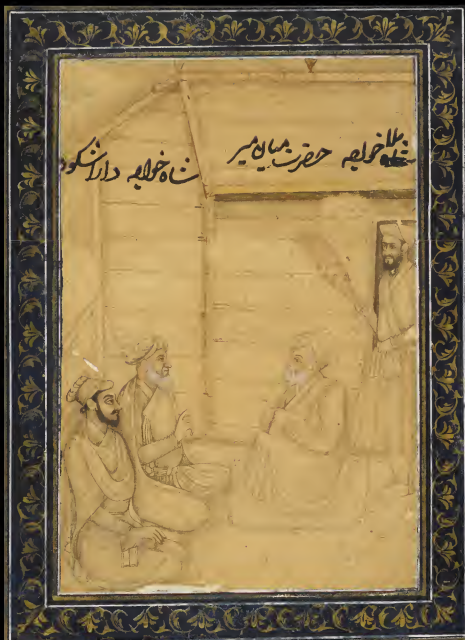 ملا خواجه حضرت میان میر
شاه خواجه دارا شکوه